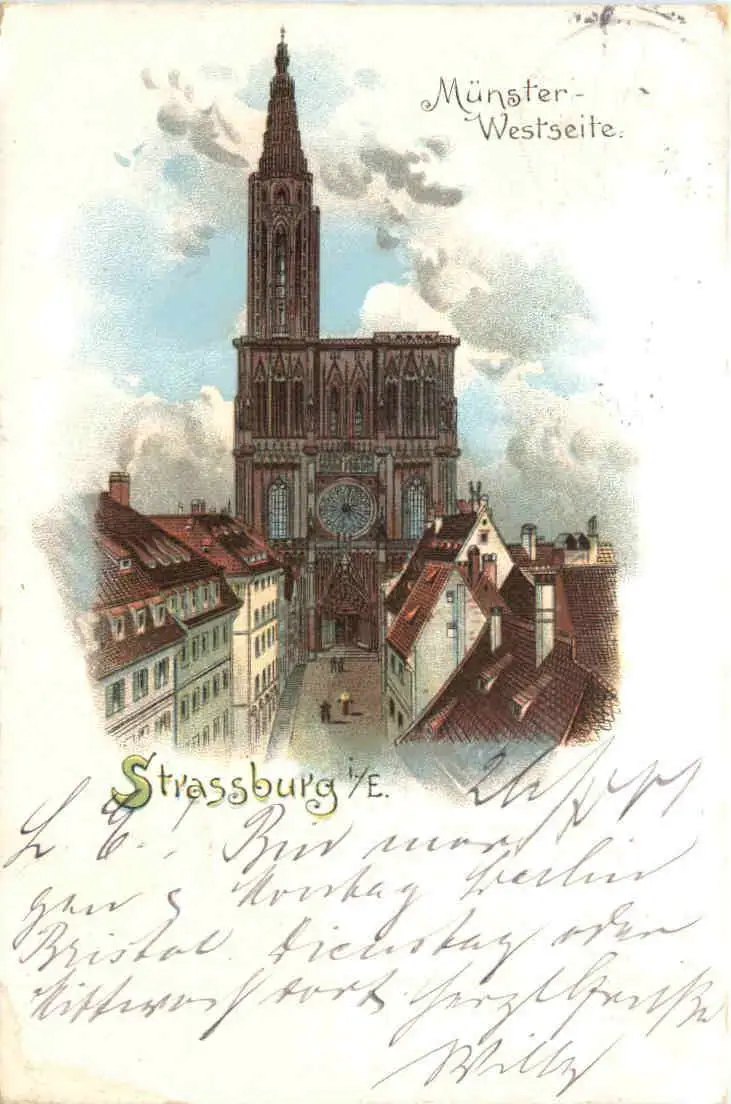 Münster-
Westseite.
Strassburg i/E.
L. E.! Bin mor
gen & Montag Berlin
Bristol. Dienstag oder
Mittwoch dort. Herzl Grüße
Willy